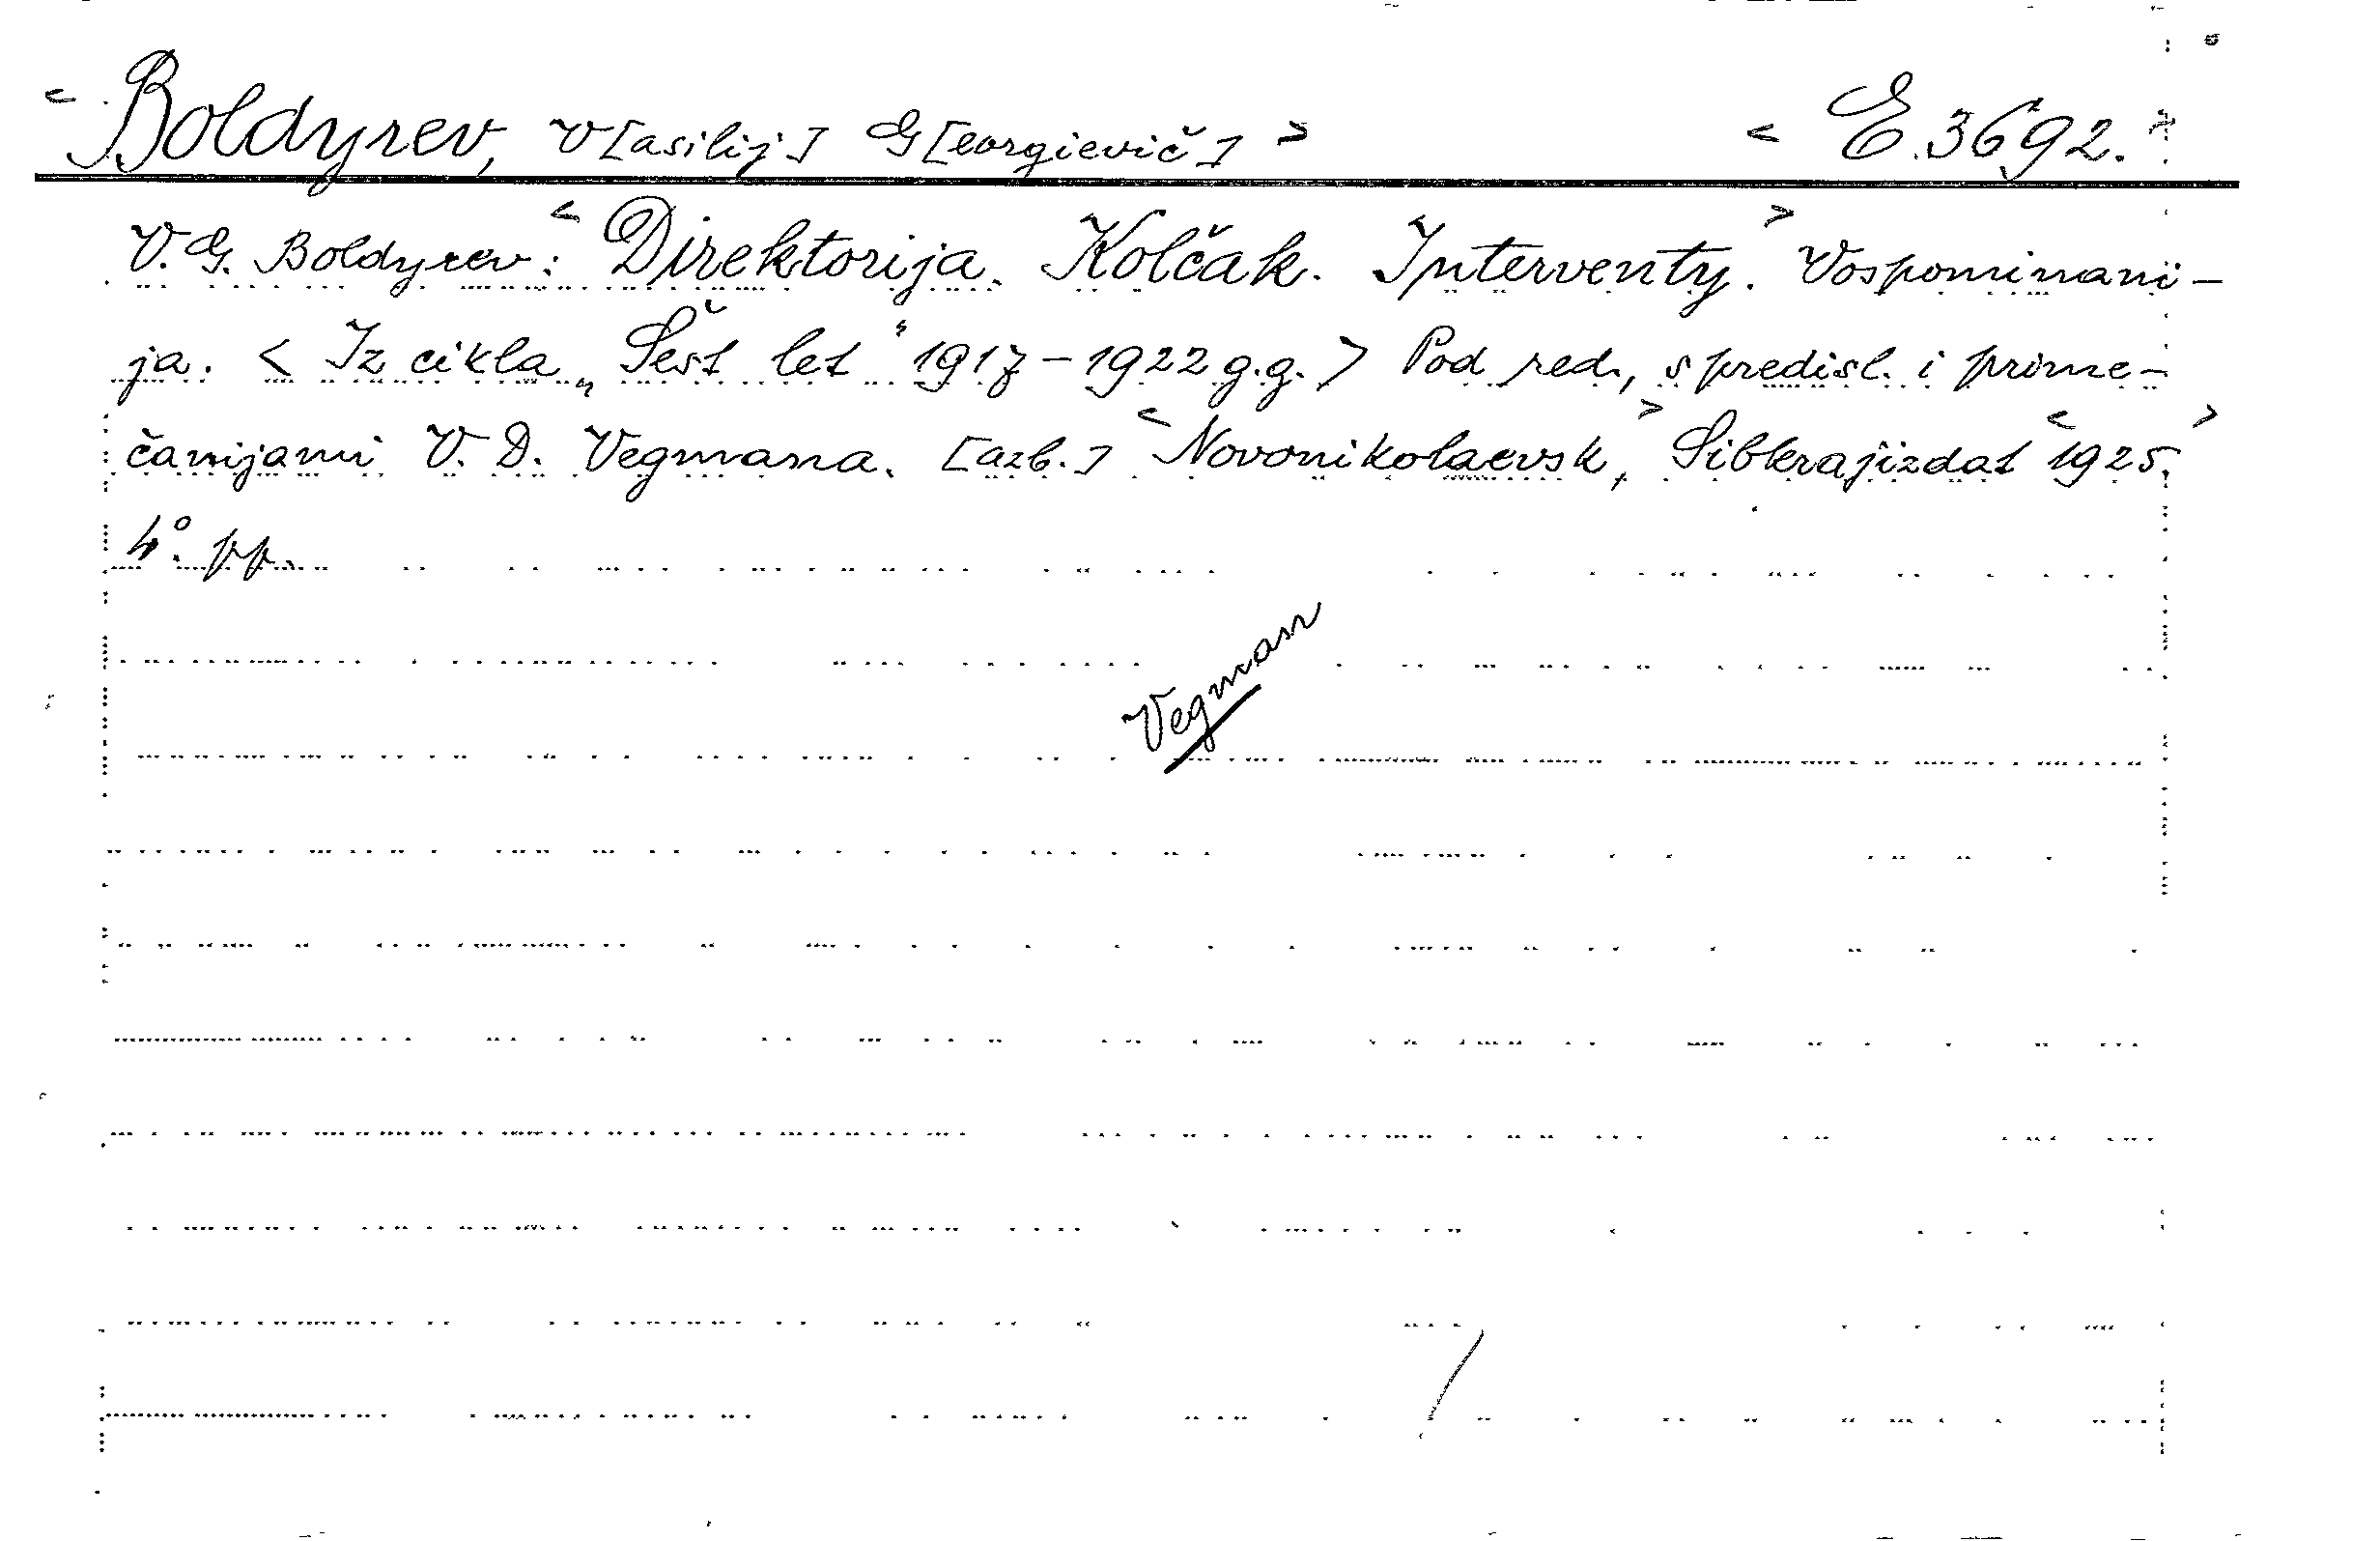 < Boldyrev, V[asilij] G[eorgievič] > < E.3692. >
V. G. Boldyrev: < Direktorija. Kolčak. Interventy. > Vospominani-
ja. < Iz cikla „Šest let“ 1917-1922 g.g. > Pod red., s predisl. i prime-
čanijami V. D. Vegmana. [azb.] < Novonikolaevsk, > Sibkrajizdat < 1925. >
4°. pp.
Vegman